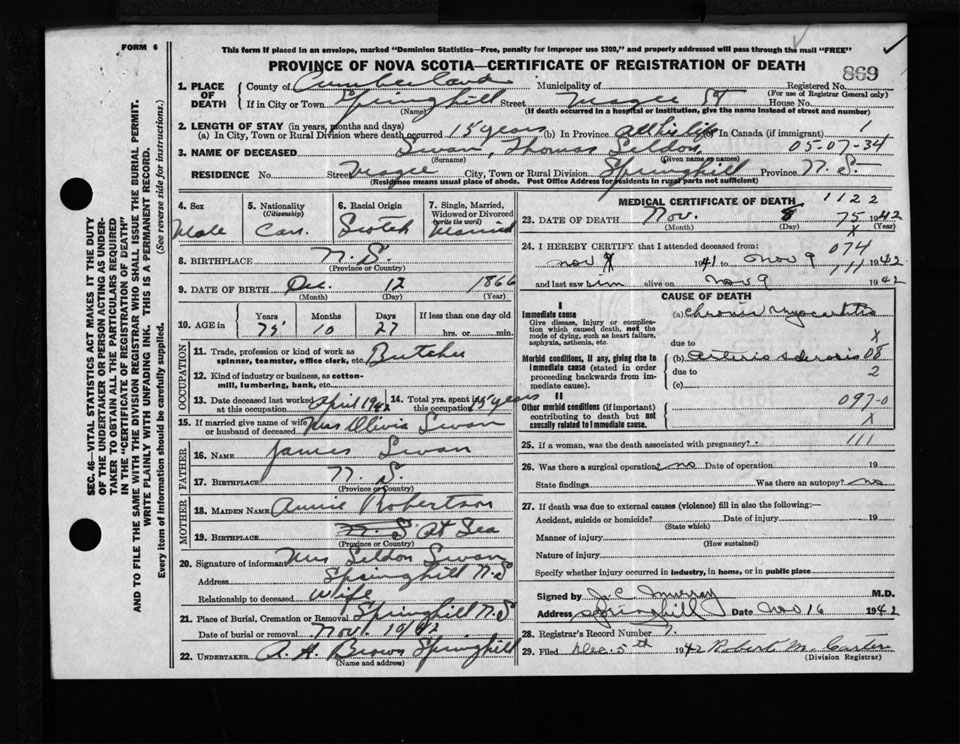 FORM 6
This form if placed in an envelope, marked "Dominion Statistics—Free, penalty for improper use $300," and properly addressed will pass through the mail "FREE"
PROVINCE OF NOVA SCOTIA—CERTIFICATE OF REGISTRATION OF DEATH
869
1. PLACE OF DEATH County of Cumberland Municipality of Registered No.
(For use of Registrar General only)
If in City or Town Springhill Street St House No.
(Name) (If death occurred in a hospital or institution, give the name instead of street and number)
2. LENGTH OF STAY (in years, months and days)
(a) In City, Town or Rural Division where death occurred 15 years (b) In Province all his life In Canada (if immigrant) 1
3. NAME OF DECEASED Swan, Thomas Seldon 05-07-34
(Surname) (Given name or names)
RESIDENCE No Street City, Town or Rural Division Springhill Province N.S.
(Residence means usual place of abode. Post Office Address for residents in rural parts not sufficient)
SEC. 46—VITAL STATISTICS ACT MAKES IT THE DUTY
OF THE UNDERTAKER OR PERSON ACTING AS UNDER-
TAKER TO OBTAIN ALL THE PARTICULARS REQUIRED
IN THE "CERTIFICATE OF REGISTRATION OF DEATH"
AND TO FILE THE SAME WITH THE DIVISION REGISTRAR WHO SHALL ISSUE THE BURIAL PERMIT.
WRITE PLAINLY WITH UNFADING INK. THIS IS A PERMANENT RECORD.
Every item of information should be carefully supplied. (See reverse side for instructions.)
4. Sex
Male
5. Nationality
(Citizenship)
Can.
6. Racial Origin
Scotch
7. Single, Married,
Widowed or Divorced
(write the word)
Married
8. BIRTHPLACE N.S.
(Province or Country)
9. DATE OF BIRTH Dec. 12 1866
(Month) (Day) (Year)
10. AGE in Years Months Days If less than one day old
75 10 27 hrs. or min.
OCCUPATION
11. Trade, profession or kind of work as
spinner, teamster, office clerk, etc. Butcher
12. Kind of industry or business, as cotton-
mill, lumbering, bank, etc.
13. Date deceased last worked
at this occupation April 1942
14. Total yrs. spent in
this occupation 15 years
15. If married give name of wife
or husband of deceased Mrs Olivia Swan
FATHER
16. NAME James Swan
17. BIRTHPLACE N.S.
(Province or Country)
MOTHER
18. MAIDEN NAME Annie Robertson
19. BIRTHPLACE N. S At Sea
(Province or Country)
20. Signature of informant Mrs Seldon Swan
Address Springhill N.S
Relationship to deceased Wife
21. Place of Burial, Cremation or Removal Springhill N.S
Date of burial or removal
22. UNDERTAKER A. H. Brown Springhill
(Name and address)
MEDICAL CERTIFICATE OF DEATH 1122
23. DATE OF DEATH Nov. 8 75 1942
(Month) (Day) X (Year)
24. I HEREBY CERTIFY that I attended deceased from: 074
Nov 1941 to Nov 9 111 1942
and last saw him alive on Nov 9 1942
CAUSE OF DEATH
I
Immediate cause
Give disease, injury or complica-
tion which caused death, not the
mode of dying, such as heart failure,
asphyxia, asthenia, etc.
(a) Chronic Myocarditis
due to X
Morbid conditions, if any, giving rise to
immediate cause (stated in order
proceeding backwards from im-
mediate cause).
(b) Arterio sclerosis 08
due to 2
(c)
II
Other morbid conditions (if important)
contributing to death but not
causally related to immediate cause.
097-0
X
25. If a woman, was the death associated with pregnancy? 111
26. Was there a surgical operation? no Date of operation 19
State findings Was there an autopsy? no
27. If death was due to external causes (violence) fill in also the following:—
Accident, suicide or homicide? Date of injury 19
(State which)
Manner of injury
(How sustained)
Nature of injury
Specify whether injury occurred in industry, in home, or in public place
Signed by J. C. Murray M.D.
Address Springhill Date Nov 16 1942
28. Registrar's Record Number 7.
29. Filed Dec. 5th 1942 Robert M. Carter
(Division Registrar)